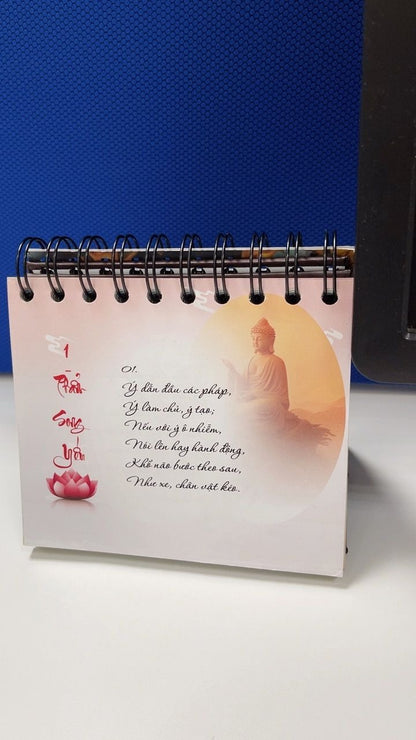 1
Phẩm
Song
Yếu
01.
Ý dẫn đầu các pháp,
Ý làm chủ, ý tạo;
Nếu với ý ô nhiễm,
Nói lên hay hành động,
Khổ não bước theo sau,
Như xe, chân vật kéo.